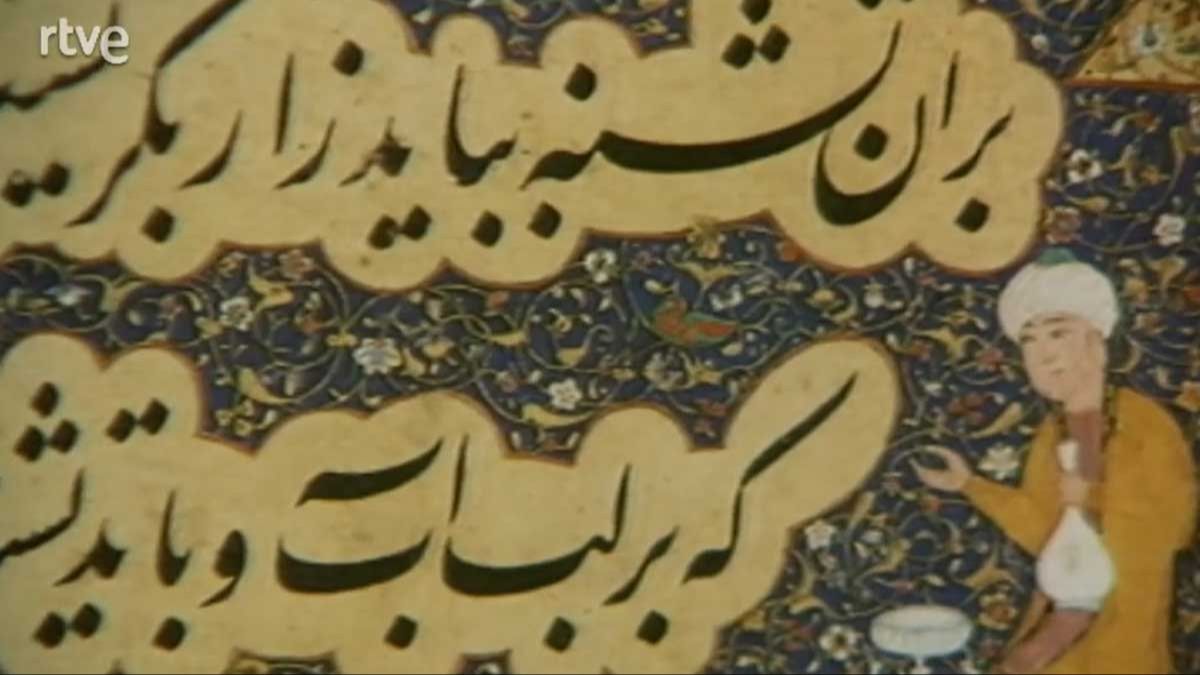 rtve
بران تشنه بباید زار بگریست
که بر لب آب و باید